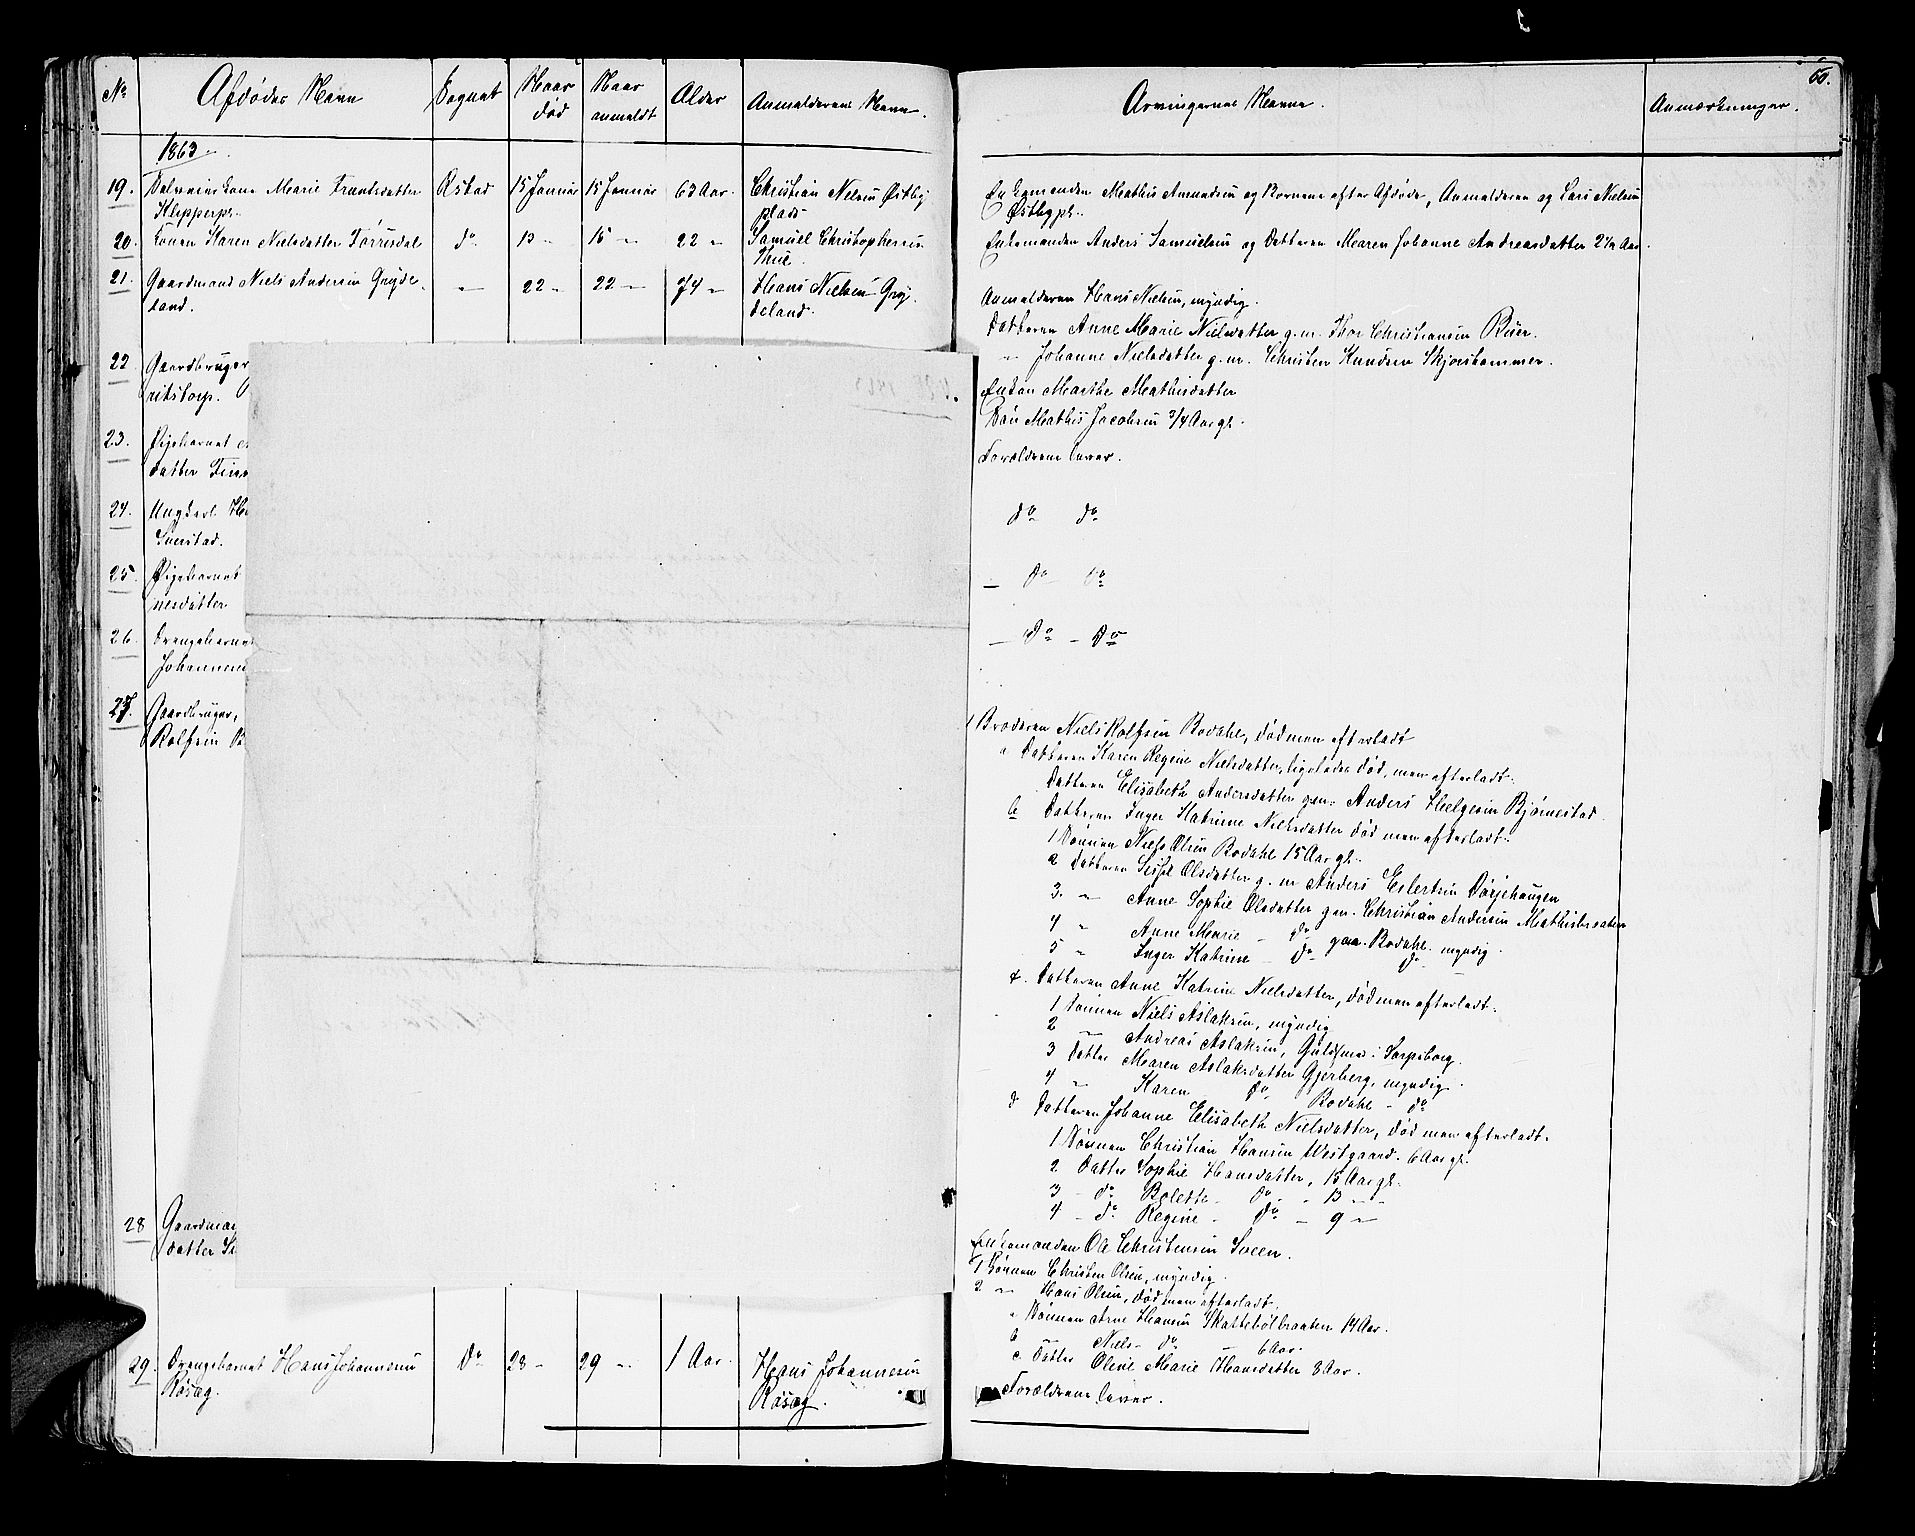 60.
No Afdødes Navn Sognet Naar død Naar anmeldt Alder Anmelderens Navn.
Arvingernes Navne. Anmærkninger.
1863
19. Marie Askad 15 Januar 15 Januar 63 Aar. Christian Nielsen Østby
Enkemanden Mathis Amundsen og Børnene efter Afdøde, Anmelderen og Lars Nielsen
Klepperpl. plads
Østbypl.
20. Konen Karen Nielsdatter Torrisdal do 13 15 22 Samuel Christophersen
Enkemanden Anders Samuelsen og Datteren Maren Johanne Andreasdatter 2½ Aar.
21. Gaardmand Niels Andersen Gryde- 22 22 74 Hans Nielsen Gry-
land. deland.
Anmelderen Hans Nielsen, myndig.
Datteren Anne Marie Nielsdatter g.m. Thor Christiansen Buer.
" Johanne Nielsdatter g.m. Christen Knudsen
22 Gaardbruger
Enken Marthe Mathisdatter
Søn Mathis Jacobsen 3/4 Aar gl.
23. Pigebarnet
datter
Forældrene lever.
24. Ungkarl
do do
25. Pigebarnet
nesdatter
do do
26. Drengebarnet
Johannesen
do do
27. Gaardbruger,
Rolfsen
1 Broderen Niels Rolfsen Bodahl, død men efterladt
a Datteren Karen Regine Nielsdatter, ligeledes død, men efterladt:
Datteren Elisabeth Andersdatter gm. Anders Helgesen Bjørnestad
b Datteren Inger Katrine Nielsdatter død men efterladt:
1 Sønnen Niels Olsen Bodahl 15 Aar gl.
2 Datteren Sissel Olsdatter g.m Anders Eilertsen
3. " Anne Sophie Olsdatter gm. Christian Andersen Mathisbraaten
4 " Anne Marie do Bodahl. myndig.
5 " Inger Katrine do do
c. Datteren Anne Katrine Nielsdatter, død men efterladt:
1 Sønnen Niels Aslaksen, myndig
2 " Andreas Aslaksen, Guldsmed i Sarpsborg.
3 Datter Maren Aslaksdatter Gjerberg, myndig.
4 " Karen do Bodahl - do
d Datteren Johanne Elisabeth Nielsdatter, død men efterladt:
1 Sønnen Christian Hansen Westgaard. 6 Aar gl.
2 Datter Sophie Hansdatter, 15 Aar gl.
3 - do Bolette do - 13 -
4 - do Regine do - 9 -
28 Gaardman
datter
Enkemanden Ole Christensen Sveen.
1 Sønnen Christen Olsen, myndig.
2. " Hans Olsen, død men efterladt
a Sønnen Arne Hansen Skattebølbraaten 14 Aar.
b Niels do 6 Aar.
c. Datter Oline Marie Hansdatter 8 Aar.
29. Drengebarnet Hans Johannesen do 23 29 1 Aar. Hans Johannesen
Røsæg. Røsæg.
Forældrene lever.